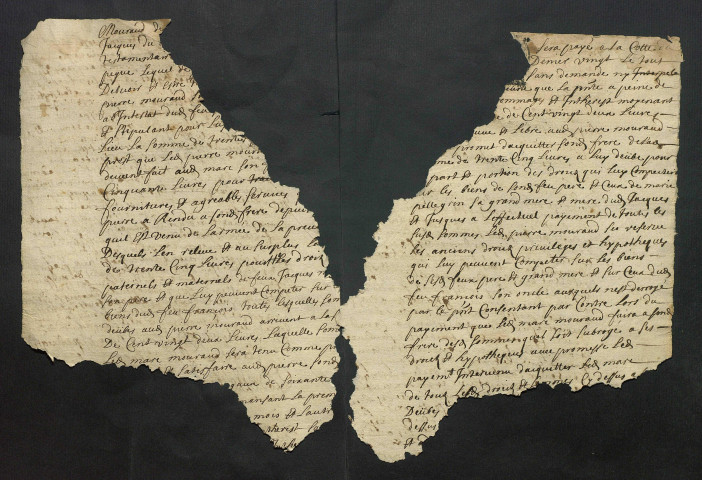 Mouraud de
Jacques du
testamentair
pique Lequel de
pierre mouraud
a Linterest dud feu
et stipulant pour luy
Lieu La somme de trente
prest que Led pierre mouraud
devent fait aud marc son
Cinquante Livres pour
fournitures et agreables services
pierre a Rendu a sond frere depuis
quil est venu de Larmée de la presen
Desquels Len releve et au surplus La
de trente Cinq Livres pour les droits
paternels et maternels de feu Jacques
son pere et que Luy peuvent Competer sur
biens dud feu françois, toutes lesquelles som
deübes aud pierre mouraud arrivent a La
De Cent vingt deux Livres Laquelle som
Led marc mouraud sera tenu Comme
et satisfaire aud pierre sond
egaux de soixante
La prem
mois et Lautre
sera payé a La Cotte
Demes vingt Le tout
sans demande ny Interpela
que La prte a peine de
et Interest moyenant
de Cent vingt deux Livres
aud pierre mouraud
promet dacquitter sond frere de la
de trente Cinq Livres a Luy deübe pour
part et portion des droits que Luy Competent
sur les biens de sond feu pere et Ceux de marie
pellegrin sa grand mere et mere dud Jacques
et Jusques a Leffectuel payement de toutes les
susd sommes Led pierre mouraud se reserve
les anciens droits privileges et hypotheques
qui Luy peuvent Competer sur les biens
de sesd feux pere et grand mere et sur Ceux dud
feu francois son oncle ausquels nest derogé
par le prst Consentant par Contre Lors du
payement que Led marc mouraud faira a sond
frere desd sommes quil soit subrogé a ses
droits et hypotheques avec promesse Led
payemt Intervenu dacquitter Led marc
de tous Lesd droits et sommes Cy dessus
Deübes
dessus